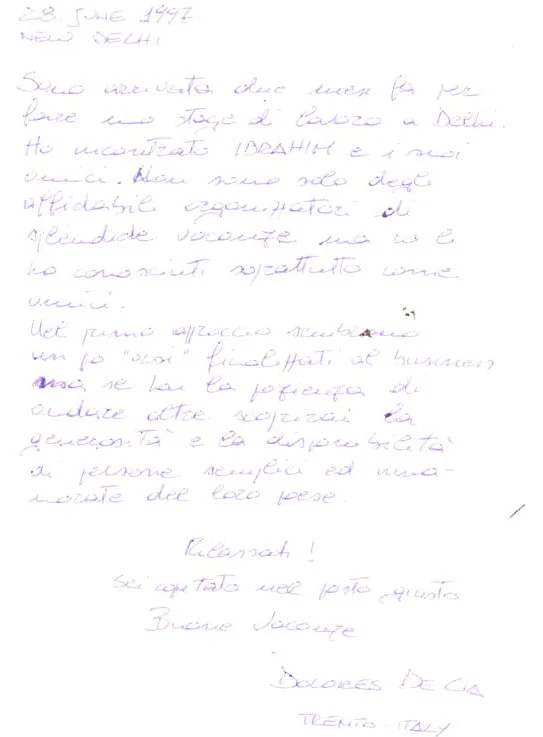 28 JUNE 1997
NEW DELHI
Sono arrivata due mesi fa per
fare uno stage di lavoro a Delhi.
Ho incontrato IBRAHIM e i suoi
amici. Non sono solo degli
affidabili organizzatori di
splendide vacanze ma io li
ho conosciuti soprattutto come
amici.
Nel primo approccio sembrano
un po' finalizzati al business
ma se hai la pazienza di
andare oltre scoprirai la
generosità e la disponibilità
di persone semplici ed inna-
morate del loro paese.
Rilassati!
Sei capitato nel posto giusto
Buone Vacanze
DOLORES DE
TRENTO - ITALY